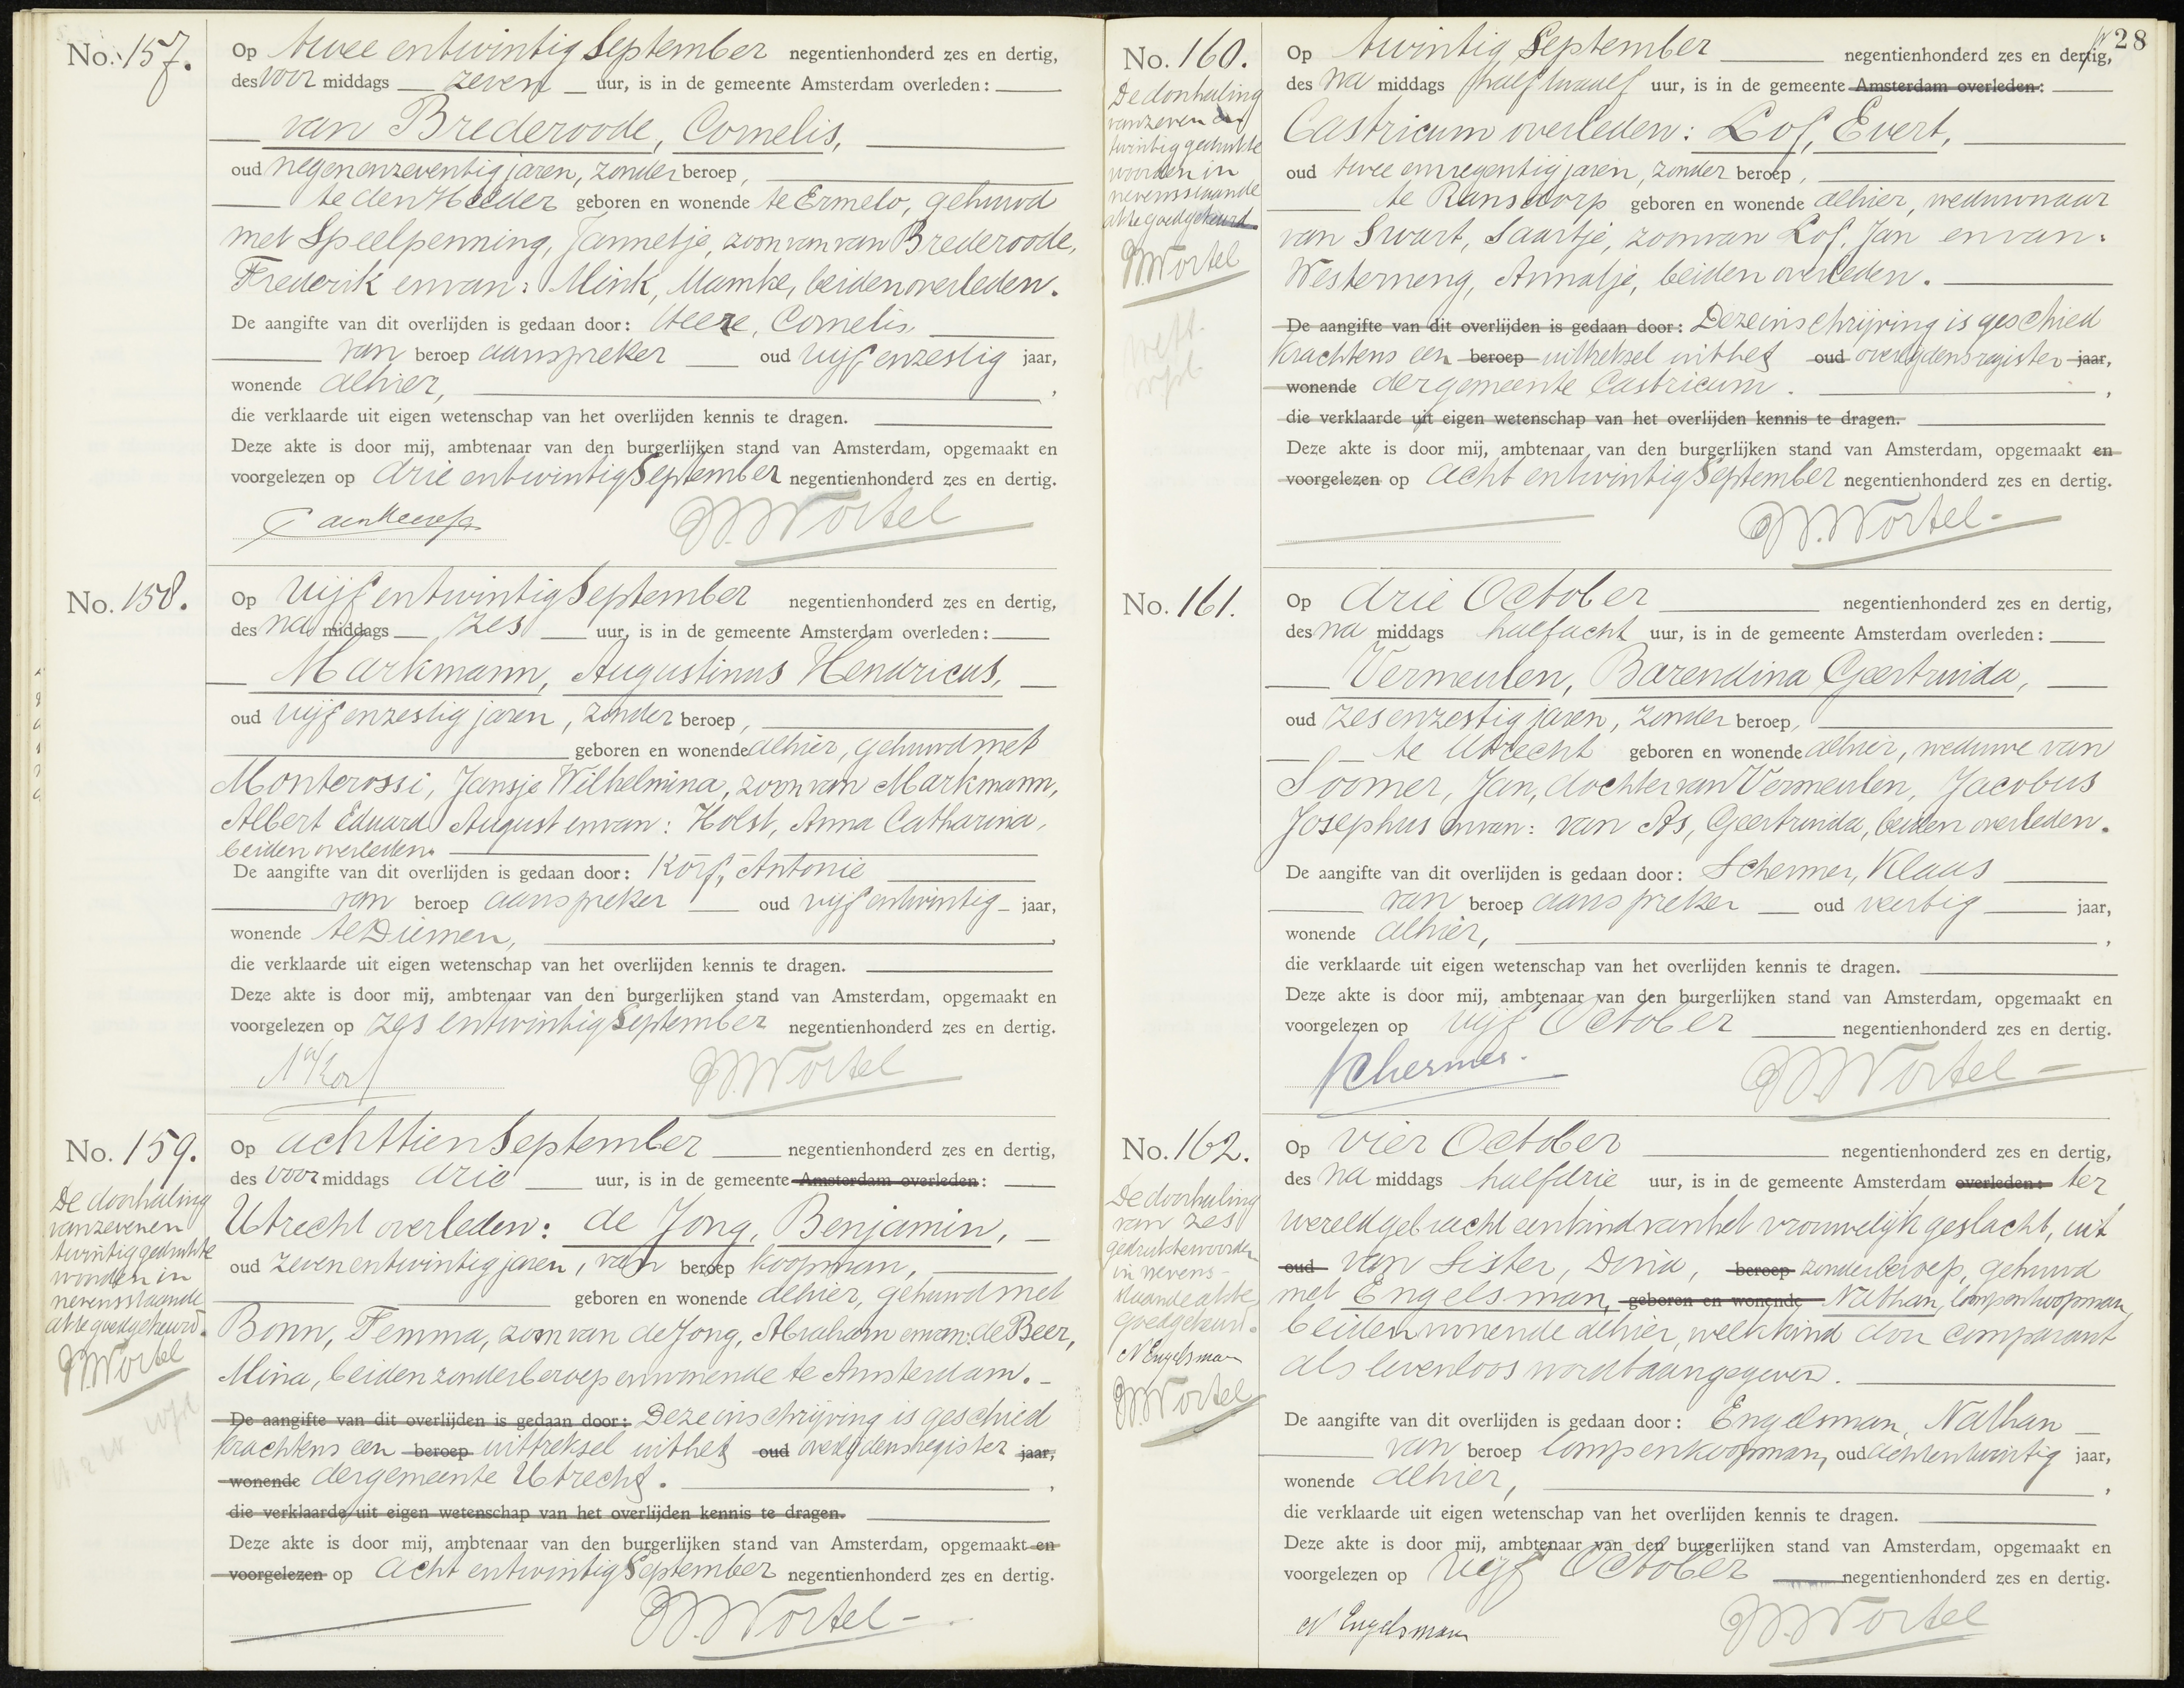 No. 157.
Op twee en twintig September negentienhonderd zes en dertig,
des voor middags zeven uur, is in de gemeente Amsterdam overleden:
van Brederoode, Cornelis,
oud negenenzeventig jaren, zonder beroep,
te den Helder geboren en wonende te Ermelo, gehuwd
met Speelpenning, Jannetje, zoon van van Brederoode,
Frederik en van: Mink, Mamke, beiden overleden.
De aangifte van dit overlijden is gedaan door: Heere, Cornelis
van beroep aanspreker oud vijf en zestig jaar,
wonende alhier,
die verklaarde uit eigen wetenschap van het overlijden kennis te dragen.
Deze akte is door mij, ambtenaar van den burgerlijken stand van Amsterdam, opgemaakt en
voorgelezen op drie en twintig September negentienhonderd zes en dertig.
W. Wortel
No. 158.
Op vijf en twintig September negentienhonderd zes en dertig,
des na middags zes uur, is in de gemeente Amsterdam overleden:
Markmann, Augustinus Hendricus,
oud vijf en zestig jaren, zonder beroep,
geboren en wonende alhier, gehuwd met
Monterossi, Jansje Wilhelmina, zoon van Markmann,
Albert Eduard August en van: Holst, Anna Catharina,
beiden overleden.
De aangifte van dit overlijden is gedaan door: Korf, Antonie
van beroep aanspreker oud vijf en twintig jaar,
wonende te Diemen,
die verklaarde uit eigen wetenschap van het overlijden kennis te dragen.
Deze akte is door mij, ambtenaar van den burgerlijken stand van Amsterdam, opgemaakt en
voorgelezen op zes en twintig September negentienhonderd zes en dertig.
Korf W. Wortel
No. 159.
De doorhaling
van zeven en
twintig gedrukte
woorden in
nevensstaande
akte goedgekeurd.
W. Wortel
Op achttien September negentienhonderd zes en dertig,
des voor middags drie uur, is in de gemeente Amsterdam overleden:
Utrecht overleden: de Jong, Benjamin,
oud zeven en twintig jaren, van beroep koopman,
geboren en wonende alhier, gehuwd met
Bonn, Femma, zoon van de Jong, Abraham en van: de Beer,
Mina, beiden zonder beroep en wonende te Amsterdam.
De aangifte van dit overlijden is gedaan door: Deze inschrijving is geschied
krachtens een beroep uittreksel uit het oud overlijdensregister jaar,
wonende der gemeente Utrecht.
die verklaarde uit eigen wetenschap van het overlijden kennis te dragen.
Deze akte is door mij, ambtenaar van den burgerlijken stand van Amsterdam, opgemaakt en
voorgelezen op acht en twintig September negentienhonderd zes en dertig.
W. Wortel
28
No. 160.
De doorhaling
van zeven en
twintig gedrukte
woorden in
nevensstaande
akte goedgekeurd
W. Wortel
Op twintig September negentienhonderd zes en dertig,
des na middags half twaalf uur, is in de gemeente Amsterdam overleden:
Castricum overleden: Lof, Evert,
oud twee en negentig jaren, zonder beroep,
te Ransdorp geboren en wonende alhier, weduwnaar
van Swart, Saartje, zoon van Lof, Jan en van:
Westerneng, Annatje, beiden overleden.
De aangifte van dit overlijden is gedaan door: Deze inschrijving is geschied
krachtens een beroep uittreksel uit het oud overlijdensregister jaar,
wonende der gemeente Castricum.
die verklaarde uit eigen wetenschap van het overlijden kennis te dragen.
Deze akte is door mij, ambtenaar van den burgerlijken stand van Amsterdam, opgemaakt en
voorgelezen op acht en twintig September negentienhonderd zes en dertig.
W. Wortel
No. 161.
Op drie October negentienhonderd zes en dertig,
des na middags half acht uur, is in de gemeente Amsterdam overleden:
Vermeulen, Barendina Geertruida,
oud zes en zestig jaren, zonder beroep,
te Utrecht geboren en wonende alhier, weduwe van
Soomer, Jan, dochter van Vermeulen, Jacobus
Josephus en van: van As, Geertruida, beiden overleden.
De aangifte van dit overlijden is gedaan door: Schermer, Klaas
van beroep aanspreker oud veertig jaar,
wonende alhier,
die verklaarde uit eigen wetenschap van het overlijden kennis te dragen.
Deze akte is door mij, ambtenaar van den burgerlijken stand van Amsterdam, opgemaakt en
voorgelezen op vijf October negentienhonderd zes en dertig.
Schermer. W. Wortel
No. 162.
De doorhaling
van zes
gedrukte woorden
in nevens-
staande akte
goedgekeurd.
N Engelsman
W. Wortel
Op vier October negentienhonderd zes en dertig,
des na middags half drie uur, is in de gemeente Amsterdam overleden: ter
wereld gebracht een kind van het vrouwelijk geslacht, uit
oud van Sister, Dina, beroep zonder beroep, gehuwd
met Engelsman, geboren en wonende Nathan, lompenkoopman,
beiden wonende alhier, welk kind door comparant
als levenloos wordt aangegeven.
De aangifte van dit overlijden is gedaan door: Engelsman, Nathan
van beroep lompenkoopman, oud acht en twintig jaar,
wonende alhier,
die verklaarde uit eigen wetenschap van het overlijden kennis te dragen.
Deze akte is door mij, ambtenaar van den burgerlijken stand van Amsterdam, opgemaakt en
voorgelezen op vijf October negentienhonderd zes en dertig.
N Engelsman W. Wortel